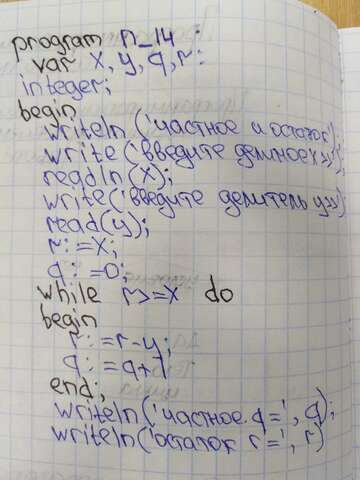 program n_14 :
var x, y, q, r:
integer;
begin
writeln ('частное и остаток');
write ('введите делимое x>>');
readln (x);
write ('введите делитель y>>')
read (y);
r:=x;
q:=0;
while r>=x do
begin
r:=r-y;
q:=q+1
end;
writeln ('частное q=', q);
writeln ('остаток r=', r)